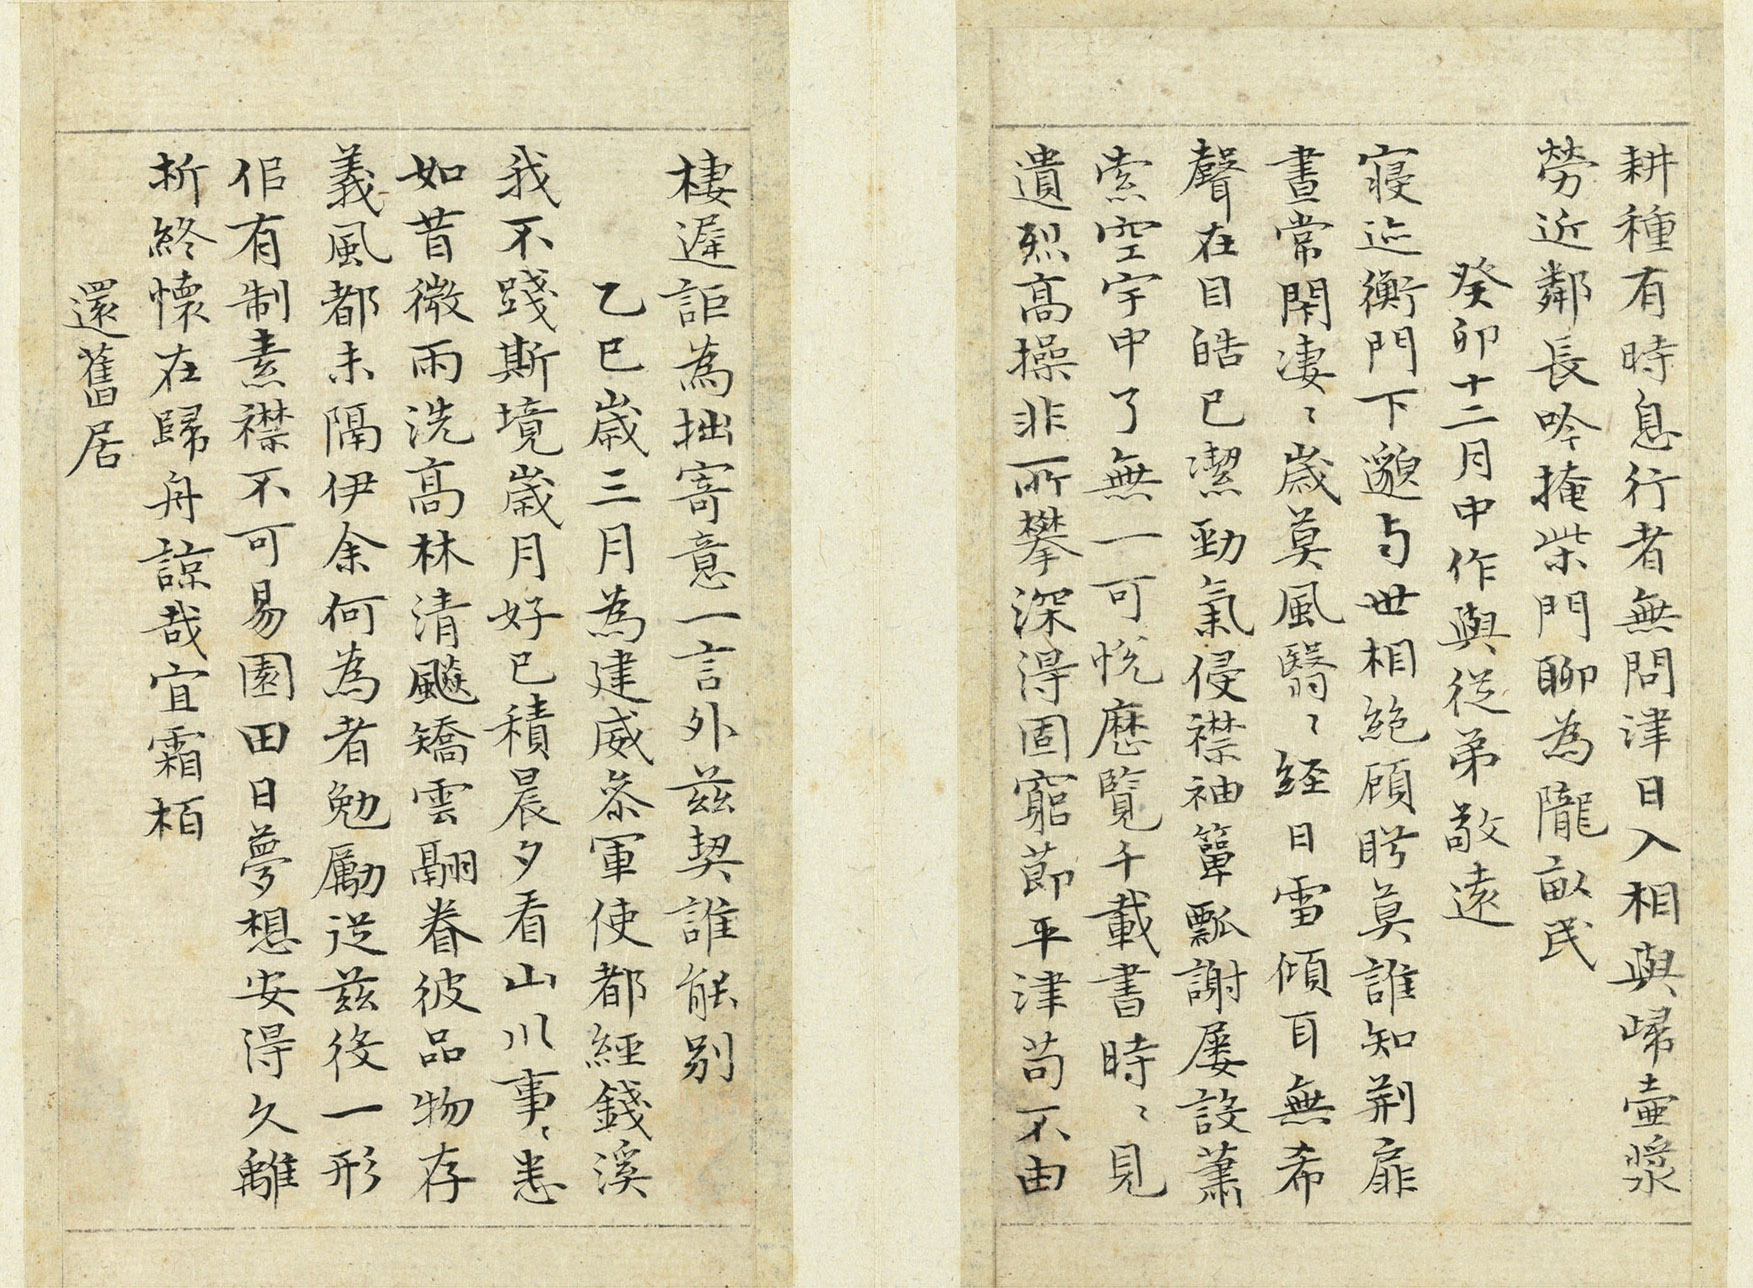 耕種有時息行者無問津日入相與歸壷漿
勞近鄰長吟掩柴門聊為隴畝民
癸卯十二月中作與從弟敬遠
寢迹衡門下邈与世相絶顧眄莫誰知荊扉
晝常閑淒〻歲莫風翳〻經日雪傾耳無希
聲在目皓已潔勁氣侵襟袖簞瓢謝屢設蕭
索空宇中了無一可悅歷覽千載書時〻見
遺烈高操非所攀深得固窮節平津苟不由
棲遲詎為拙寄意一言外茲契誰能别
乙巳歲三月為建威叅軍使都經錢溪
我不踐斯境歲月好已積晨夕看山川事〻悉
如昔微雨洗高林清飈矯雲翮眷彼品物存
義風都未隔伊余何為者勉勵從茲役一形
佀有制素襟不可易園田日夢想安得久離
析終懷在歸舟諒哉宜霜栢
還舊居